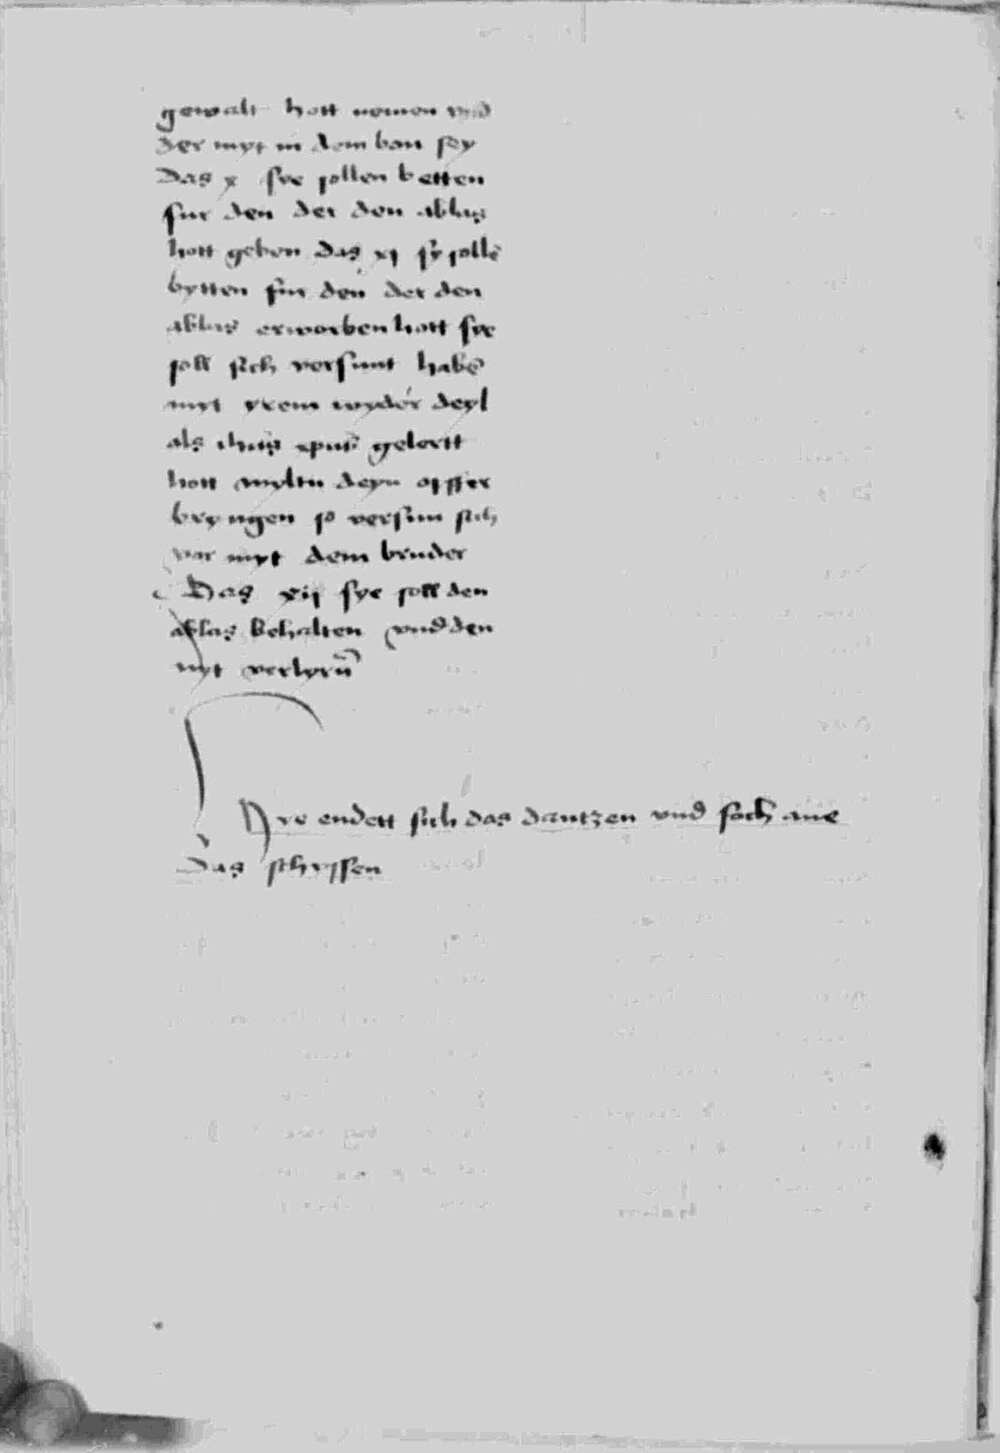 gewalt hott nemen vnd
der nyt in dem ban sey
Das x sye sollen betten
fur den der den ablas
hott geben das xj sy sollē
bytten fur den der den
ablas erworben hott sye
soll sich versunt habē
myt yrem wyder deyl
als ihus xpus gelertt
hott wyltu deyn opffer
bryngen so versun sich
vor myt dem bruder
Das xij sye soll den
ablas behalten vnd den
nyt verlyrn̄
Hye endett sich das dantzen vnd foch ane
das schyssen